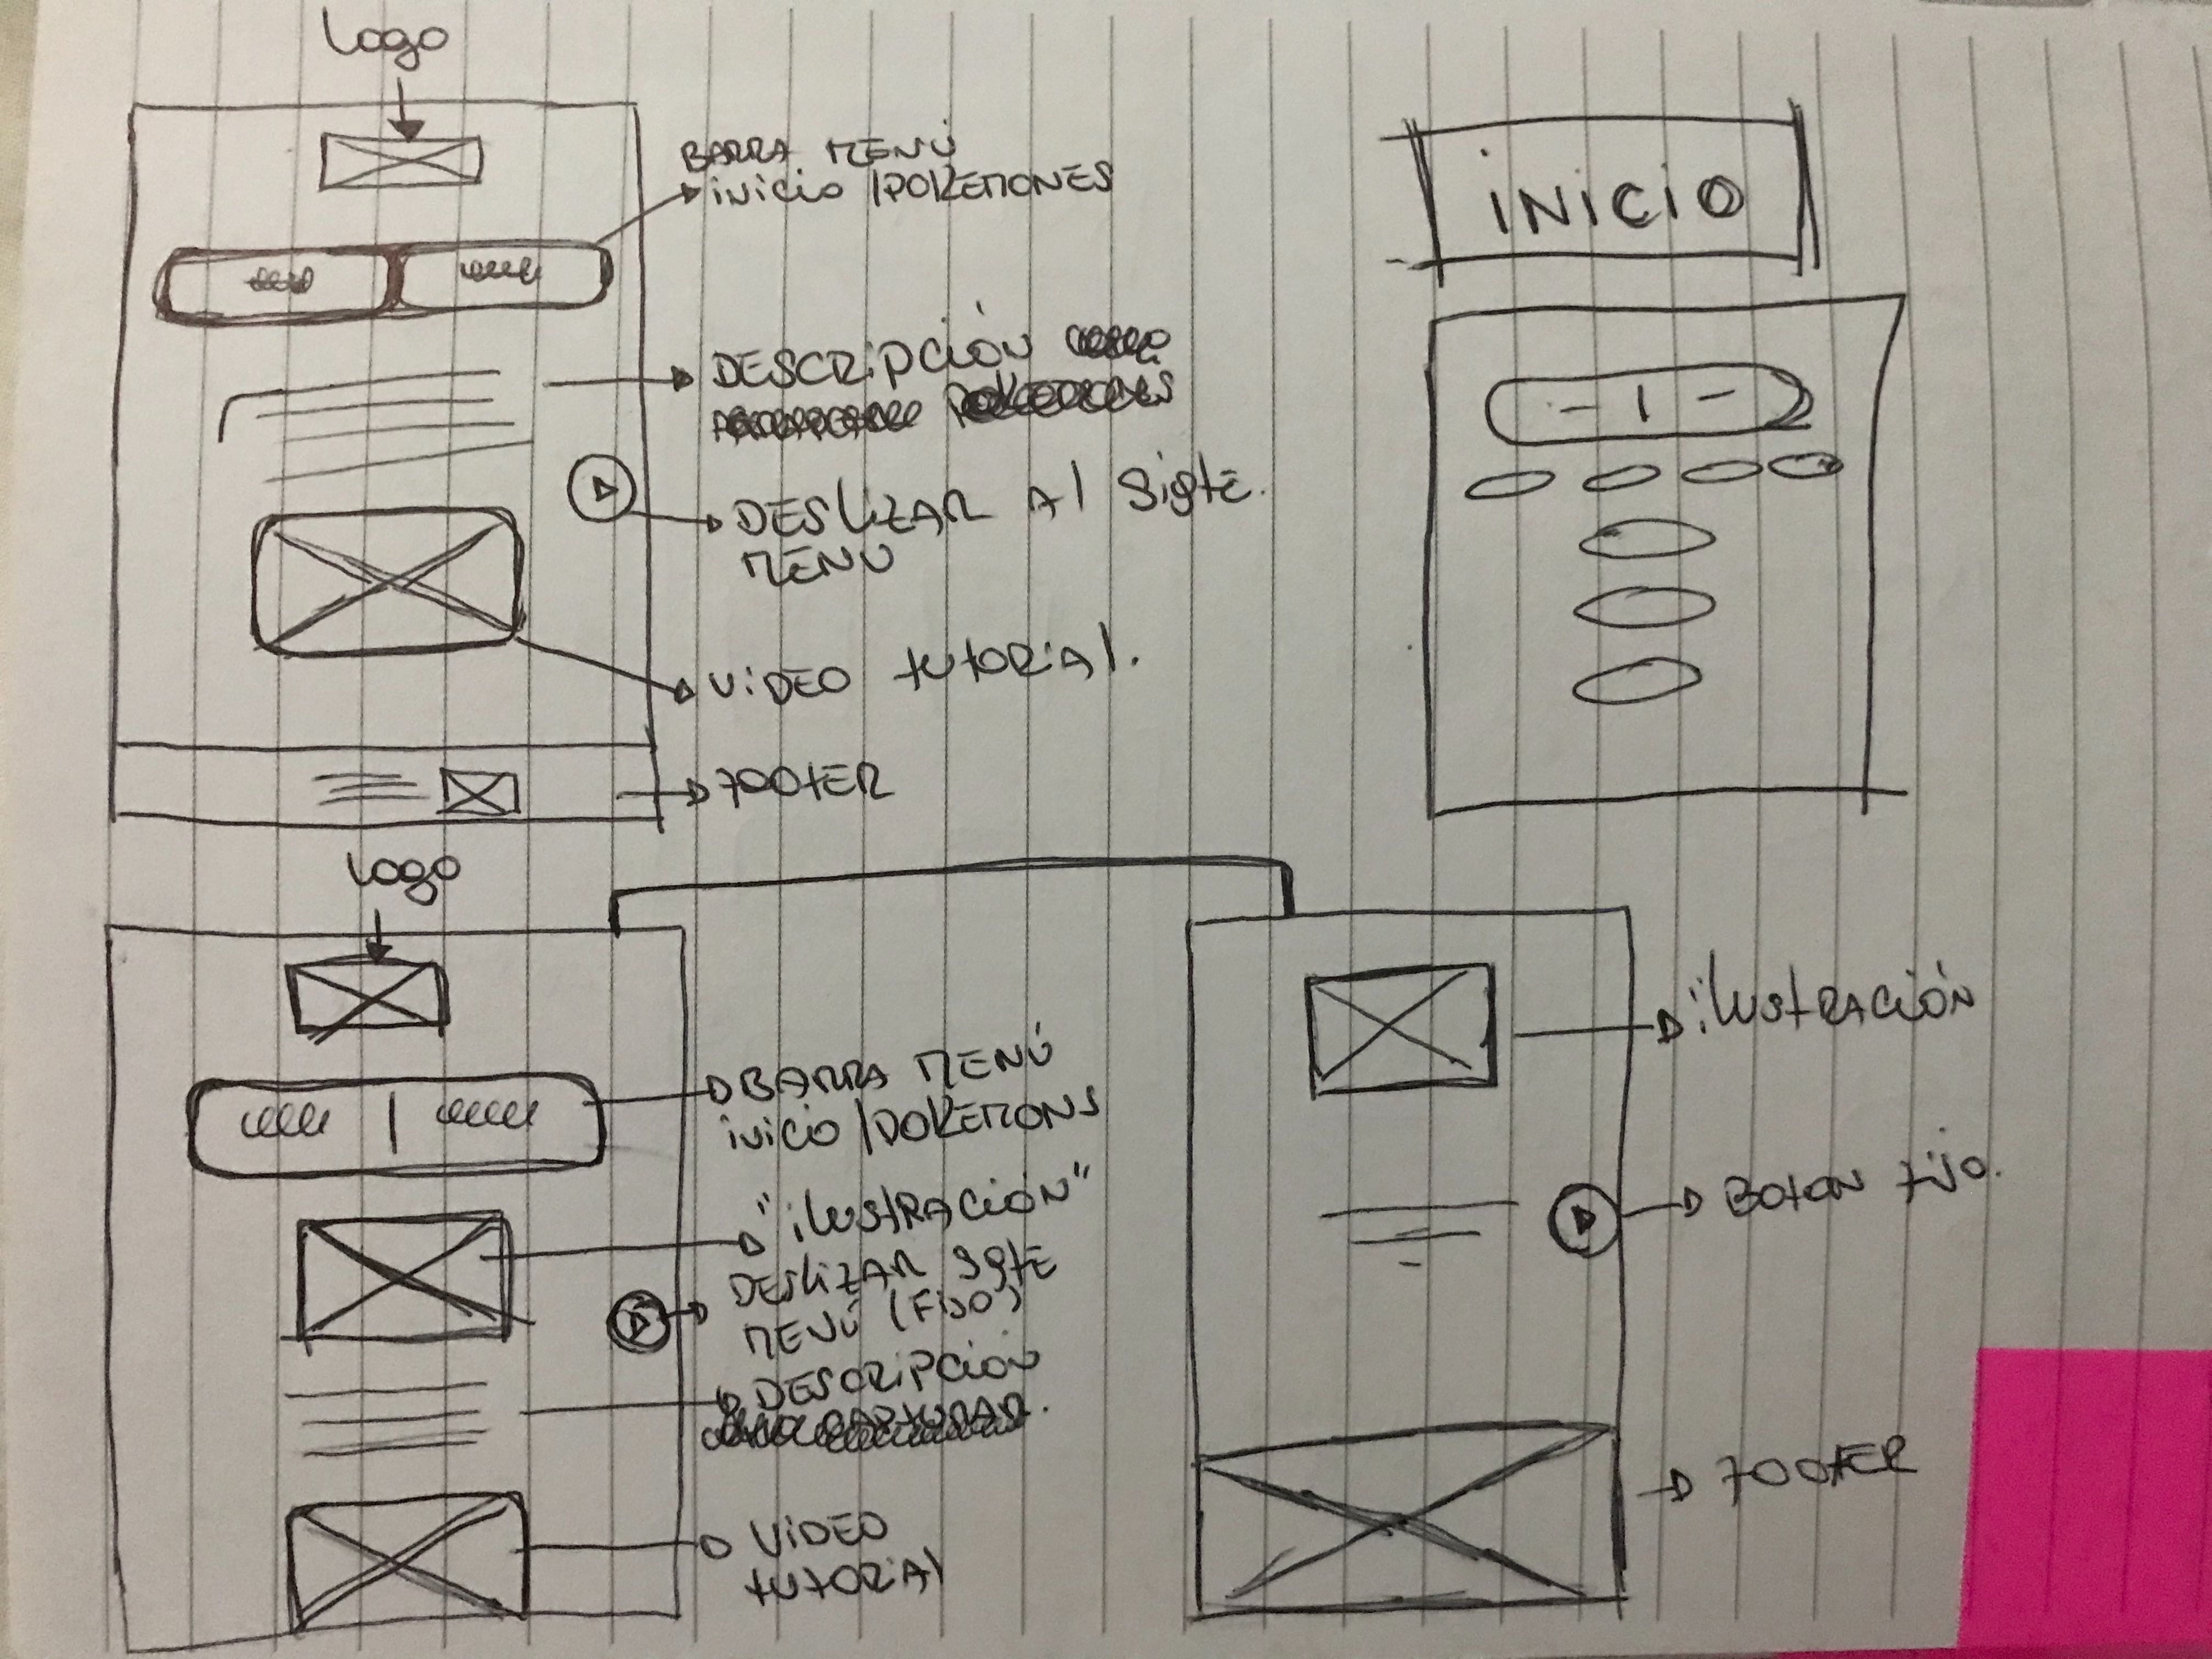 Logo
BARRA MENÚ
inicio / POKEMONES
DESCRIPCIÓN
DESLIZAR Al Sigte.
MENU
VIDEO tutORIAl.
FOOTER
INICIO
Logo
BARRA MENÚ
inicio / POKEMONS
"ilustRACIÓN"
DESLIZAR Sgte
MENÚ (FIJO)
DESCRIPCIÓN
VIDEO
tutORIAl
ilustRACIÓN
BOTON FIJO.
FOOTER